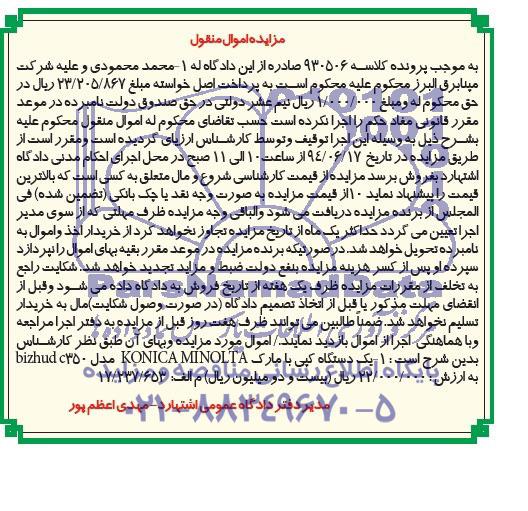 مزایده اموال منقول
به موجب پرونده کلاسه ۹۳۰۵۰۶ صادره از این دادگاه له ۱-محمد محمودی و علیه شرکت
مینابرق البرز محکوم علیه محکوم است به پرداخت اصل خواسته مبلغ ۲۳/۲۰۵/۸۶۷ ریال در
حق محکوم له ومبلغ ۱/۰۰۰/۰۰۰ ریال نیم عشر دولتی در حق صندوق دولت نامبرده در موعد
مقرر قانونی مفاد حکم را اجرا نکرده است حسب تقاضای محکوم له اموال منقول محکوم علیه
بشرح ذیل به وسیله این اجرا توقیف وتوسط کارشناس ارزیابی گردیده است ومقرر است از
طریق مزایده در تاریخ ۹۴/۰۶/۱۷ از ساعت ۱۰ الی ۱۱ صبح در محل اجرای احکام مدنی دادگاه
اشتهارد بفروش برسد مزایده از قیمت کارشناسی شروع و مال متعلق به کسی است که بالاترین
قیمت را پیشنهاد نماید ۱۰٪ از قیمت مزایده به صورت وجه نقد یا چک بانکی (تضمین شده) فی
المجلس از برنده مزایده دریافت می شود والباقی وجه مزایده ظرف مهلتی که از سوی مدیر
اجرا تعیین می گردد حداکثر یک ماه از تاریخ مزایده تجاوز نخواهد کرد از خریدار اخذ واموال به
نامبرده تحویل خواهد شد. در صورتیکه برنده مزایده در موعد مقرر بقیه بهای اموال را نپردازد
سپرده او پس از کسر هزینه مزایده بنفع دولت ضبط و مزاید تجدید خواهد شد. شکایت راجع
به تخلف از مقررات مزایده ظرف یک هفته از تاریخ فروش به دادگاه داده می شود وقبل از
انقضای مهلت مذکور یا قبل از اتخاذ تصمیم دادگاه (در صورت وصول شکایت) مال به خریدار
تسلیم نخواهد شد. ضمناً طالبین می توانند ظرف هفت روز قبل از مزایده به دفتر اجرا مراجعه
وبا هماهنگی اجرا از اموال بازدید نمایند./ اموال مورد مزایده وبهای آن طبق نظر کارشناس
بدین شرح است: ۱-یک دستگاه کپی با مارک KONICA MINOLTA مدل bizhud c۳۵۰
به ارزش ۲۲/۰۰۰/۰۰۰ ریال (بیست و دو میلیون ریال) م الف: ۱۷/۲۳۷/۶۵۳
مدیر دفتر دادگاه عمومی اشتهارد-مهدی اعظم پور
پایگاه اطلاع رسانی مناقصه و مزایده
۰۲۱-۸۸۳۴۹۶۷۰-۵